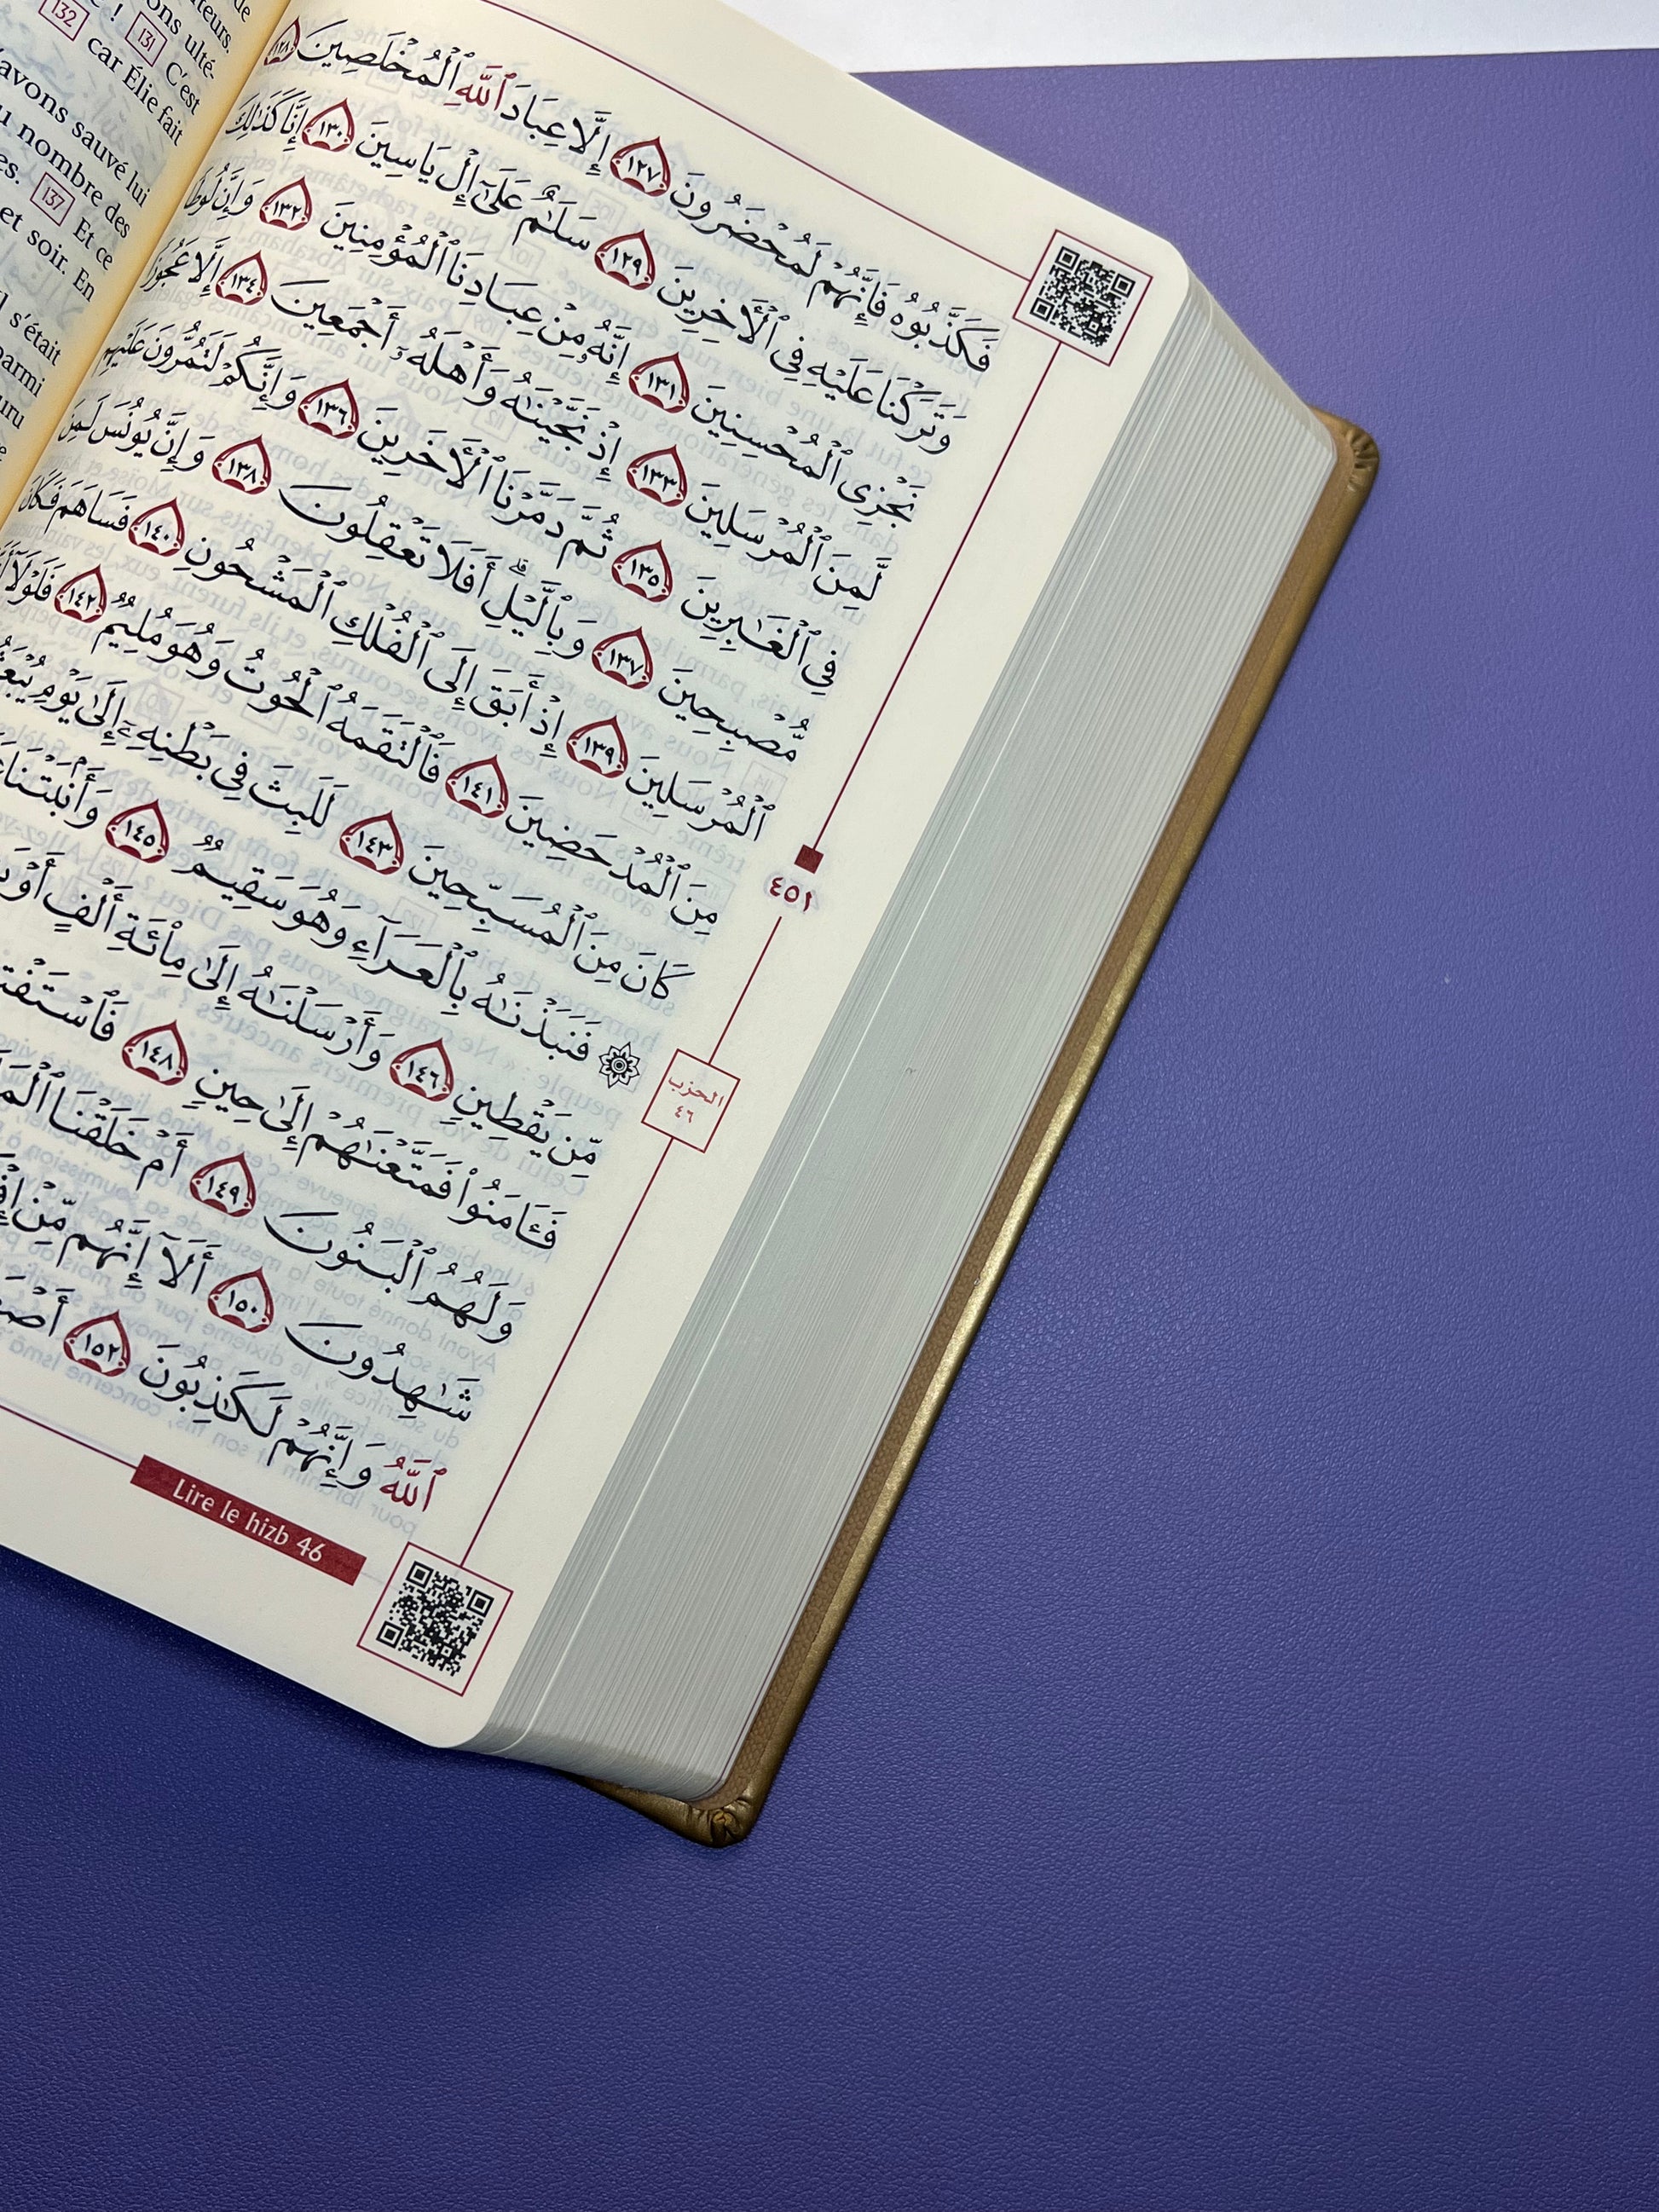 فَكَذَّبُوهُ فَإِنَّهُمْ لَمُحْضَرُونَ ١٢٧ إِلَّا عِبَادَ ٱللَّهِ ٱلْمُخْلَصِينَ ١٢٨
وَتَرَكْنَا عَلَيْهِ فِي ٱلْأَخِرِينَ ١٢٩ سَلَٰمٌ عَلَىٰٓ إِلْ يَاسِينَ ١٣٠ إِنَّا كَذَٰلِكَ
نَجْزِى ٱلْمُحْسِنِينَ ١٣١ إِنَّهُۥ مِنْ عِبَادِنَا ٱلْمُؤْمِنِينَ ١٣٢ وَإِنَّ لُوطًا
لَّمِنَ ٱلْمُرْسَلِينَ ١٣٣ إِذْ نَجَّيْنَٰهُ وَأَهْلَهُۥٓ أَجْمَعِينَ ١٣٤ إِلَّا عَجُوزًا
فِي ٱلْغَٰبِرِينَ ١٣٥ ثُمَّ دَمَّرْنَا ٱلْأَخَرِينَ ١٣٦ وَإِنَّكُمْ لَتَمُرُّونَ عَلَيْهِم
مُّصْبِحِينَ ١٣٧ وَبِٱلَّيْلِ ۗ أَفَلَا تَعْقِلُونَ ١٣٨ وَإِنَّ يُونُسَ لَمِنَ
ٱلْمُرْسَلِينَ ١٣٩ إِذْ أَبَقَ إِلَى ٱلْفُلْكِ ٱلْمَشْحُونِ ١٤٠ فَسَاهَمَ فَكَانَ
مِنَ ٱلْمُدْحَضِينَ ١٤١ فَٱلْتَقَمَهُ ٱلْحُوتُ وَهُوَ مُلِيمٌ ١٤٢ فَلَوْلَآ
كَانَ مِنَ ٱلْمُسَبِّحِينَ ١٤٣ لَلَبِثَ فِي بَطْنِهِۦٓ إِلَىٰ يَوْمِ
۞ فَنَبَذْنَٰهُ بِٱلْعَرَآءِ وَهُوَ سَقِيمٌ ١٤٥ وَأَنۢبَتْنَا
مِّن يَقْطِينٍ ١٤٦ وَأَرْسَلْنَٰهُ إِلَىٰ مِا۟ئَةِ أَلْفٍ أَوْ
فَـَٔامَنُوا۟ فَمَتَّعْنَٰهُمْ إِلَىٰ حِينٍ ١٤٨
وَلَهُمُ ٱلْبَنُونَ ١٤٩ أَمْ خَلَقْنَا
شَٰهِدُونَ ١٥٠ أَلَآ إِنَّهُم مِّنْ
ٱللَّهُ وَإِنَّهُمْ لَكَٰذِبُونَ ١٥٢
٤٥١
الحزب
٤٦
Lire le hizb 46
132
131 C'est
car Élie fait
avons sauvé lui
nombre des
137 Et ce
et soir. En
s'était